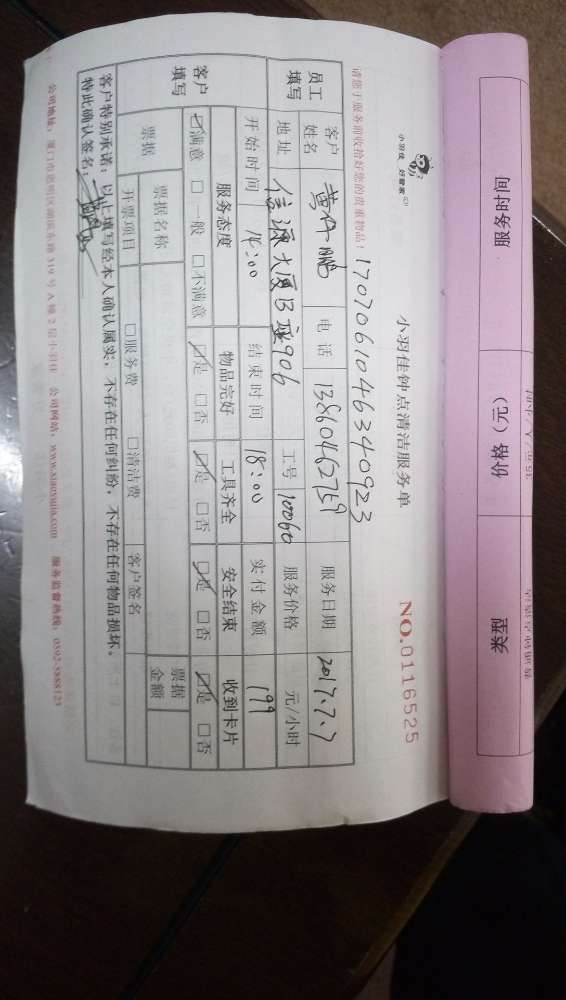 小羽佳 好管家
小羽佳钟点清洁服务单
NO.0116525
1707061046340923
请您于服务前收拾好您的贵重物品！
员工填写 客户姓名 电话 13860462759 服务日期 2017.7.7
地址 信源大厦B座906 工号 10060 服务价格 元/小时
开始时间 14:00 结束时间 18:00 实付金额 199
客户填写 服务态度 物品完好 工具齐全 安全结束 收到卡片
☑满意 □一般 □不满意 ☑是 □否 ☑是 □否 ☑是 □否 ☑是 □否
票据 票据名称 票据金额
开票项目 □服务费 □清洁费 客户签名
客户特别承诺：以上填写经本人确认属实，不存在任何纠纷，不存在任何物品损坏。
特此确认签名：
公司网站：www.xiaoyujia.com 服务监督热线：0592-5888123
服务时间 价格（元） 类型